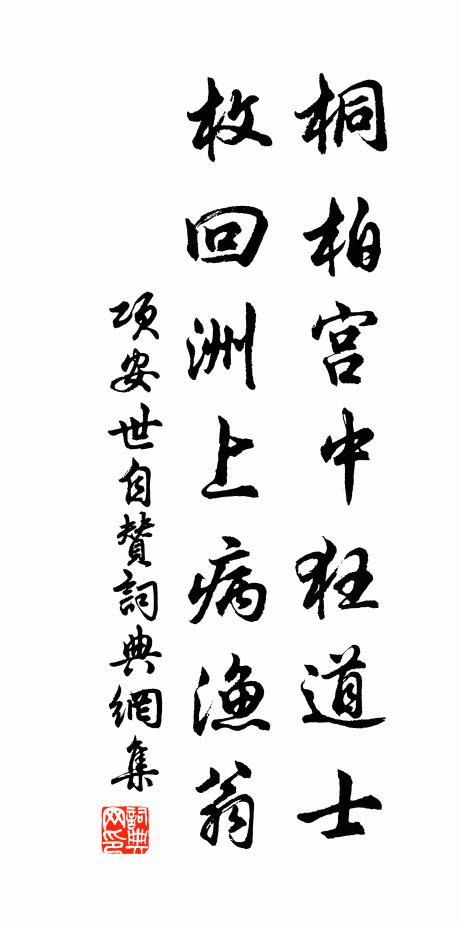 桐柏宫中狂道士
枚回洲上病渔翁
项安世自赞詞典網集
詞典網印